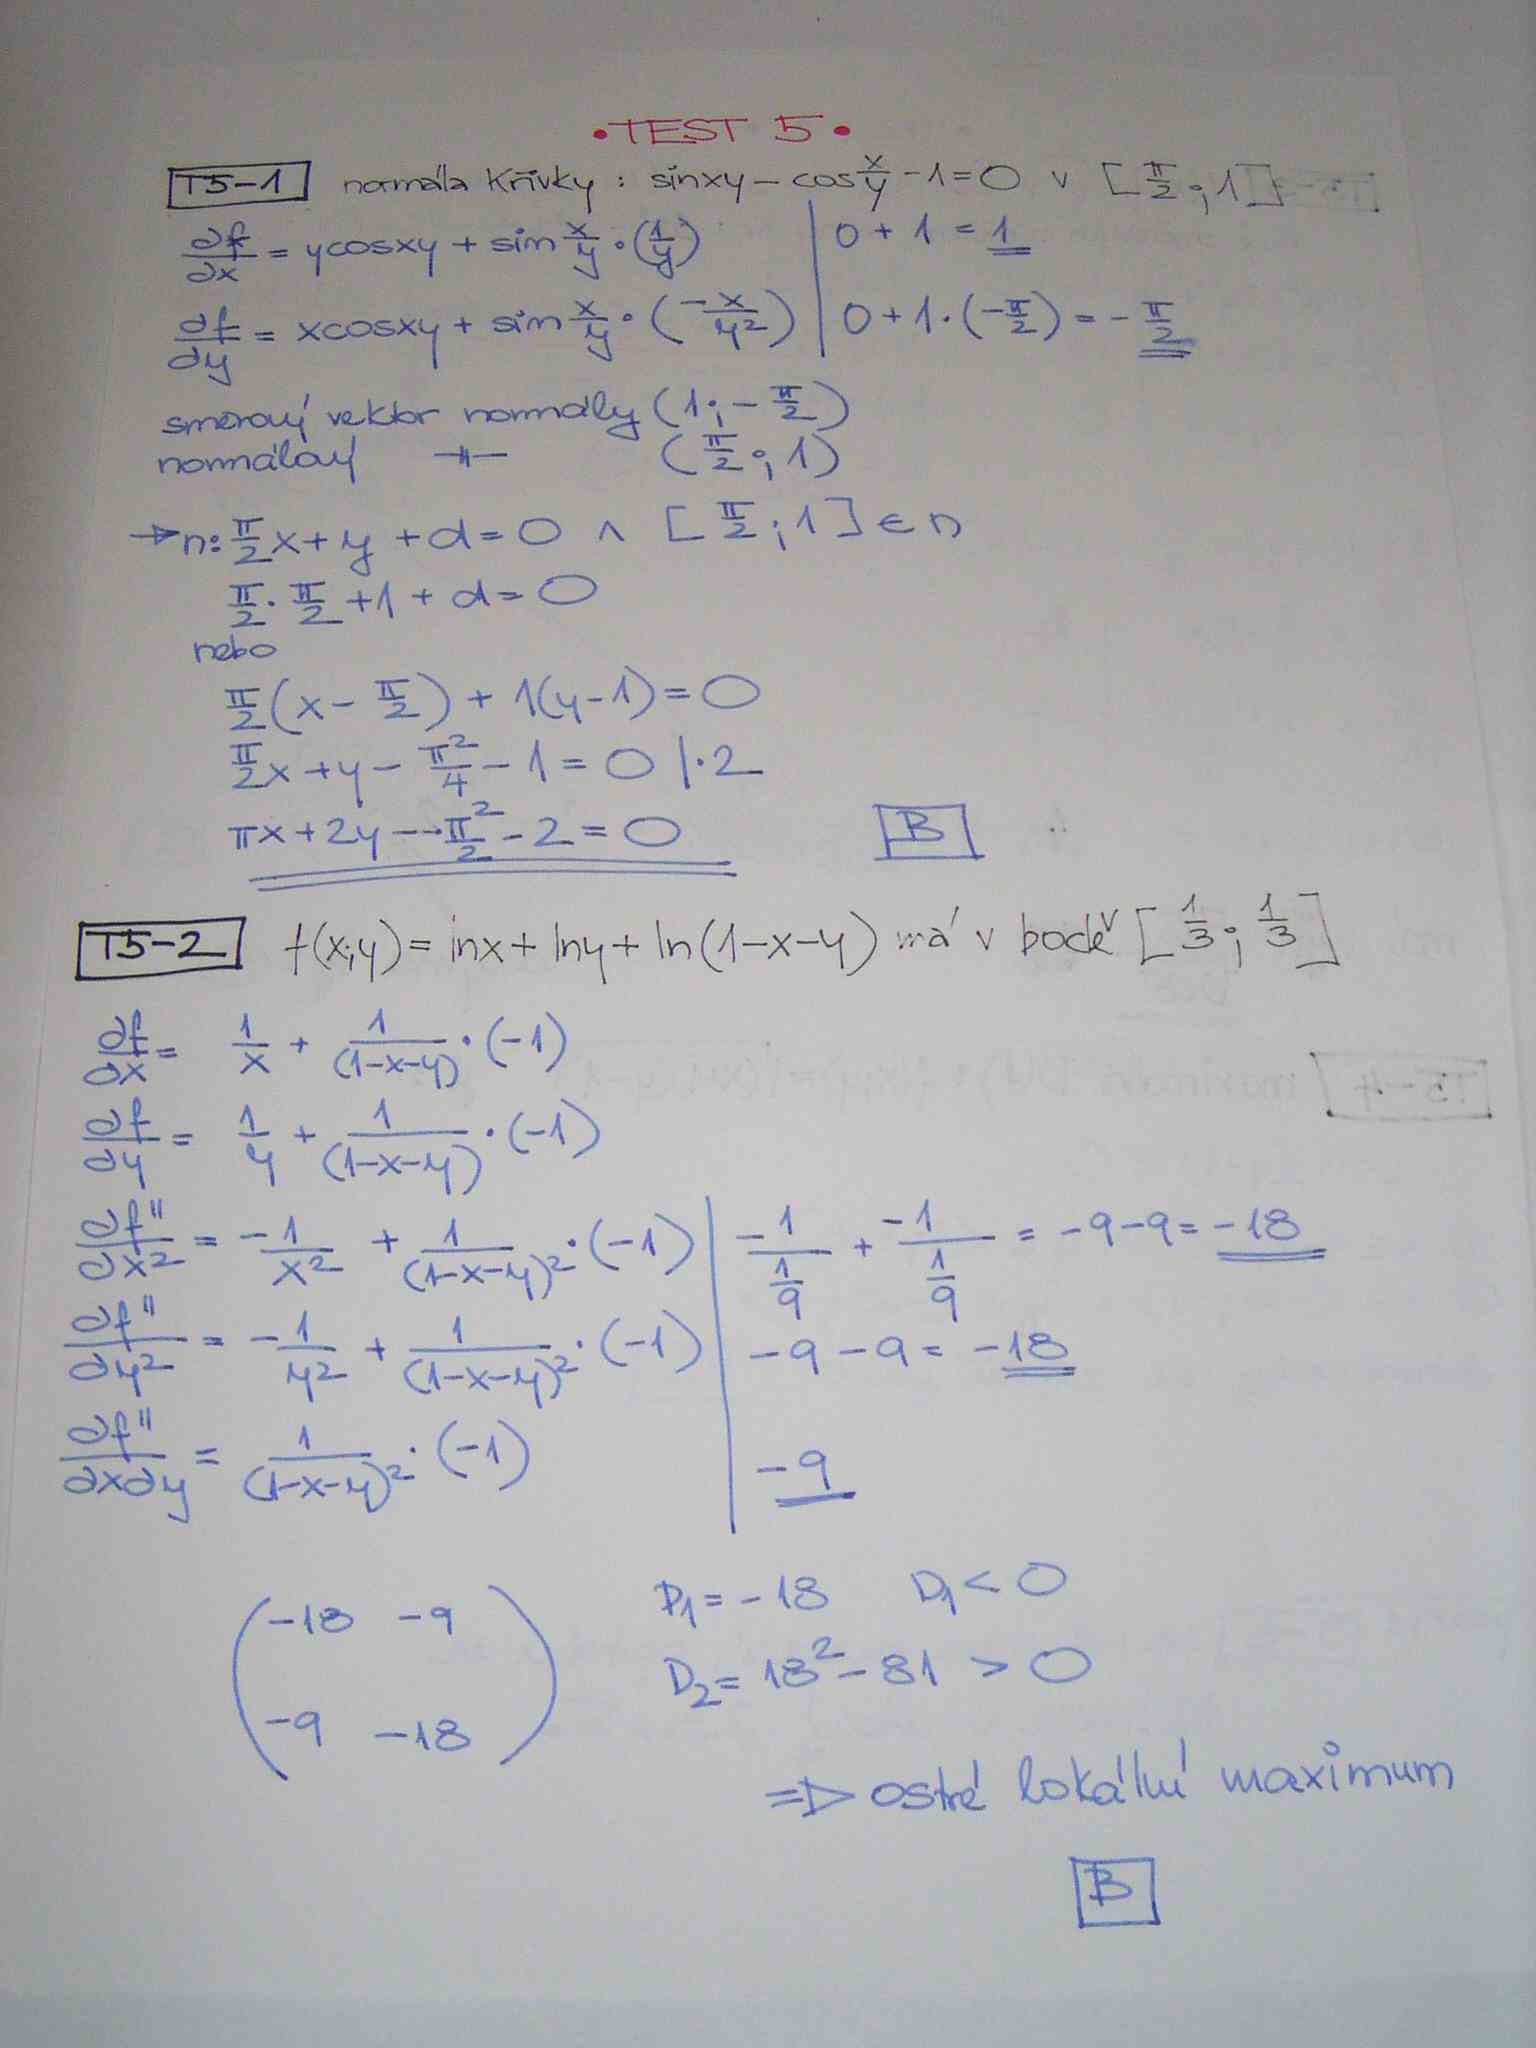 • TEST 5 •
T5-1 normála křivky : sinxy - cos x/y - 1 = 0 v [π/2 ; 1]
∂f/∂x = ycosxy + sin x/y · (1/y) | 0 + 1 = 1
∂f/∂y = xcosxy + sin x/y · (-x/y²) | 0 + 1 · (-π/2) = - π/2
směrový vektor normály (1 ; - π/2)
normálový -||- (π/2 ; 1)
→ n: π/2 x + y + d = 0 ∧ [π/2 ; 1] ∈ n
π/2 · π/2 + 1 + d = 0
nebo
π/2 (x - π/2) + 1(y-1) = 0
π/2 x + y - π²/4 - 1 = 0 |·2
πx + 2y - π²/2 - 2 = 0 B
T5-2 f(x;y) = lnx + lny + ln(1-x-y) má v bodě [1/3 ; 1/3]
∂f/∂x = 1/x + 1/(1-x-y) · (-1)
∂f/∂y = 1/y + 1/(1-x-y) · (-1)
∂f''/∂x² = -1/x² + 1/(1-x-y)² · (-1) | -1/(1/9) + -1/(1/9) = -9-9 = -18
∂f''/∂y² = -1/y² + 1/(1-x-y)² · (-1) | -9 - 9 = -18
∂f''/∂x∂y = 1/(1-x-y)² · (-1) | -9
(-18 -9 D₁ = -18 D₁ < 0
-9 -18) D₂ = 18² - 81 > 0
⇒ ostré lokální maximum
B